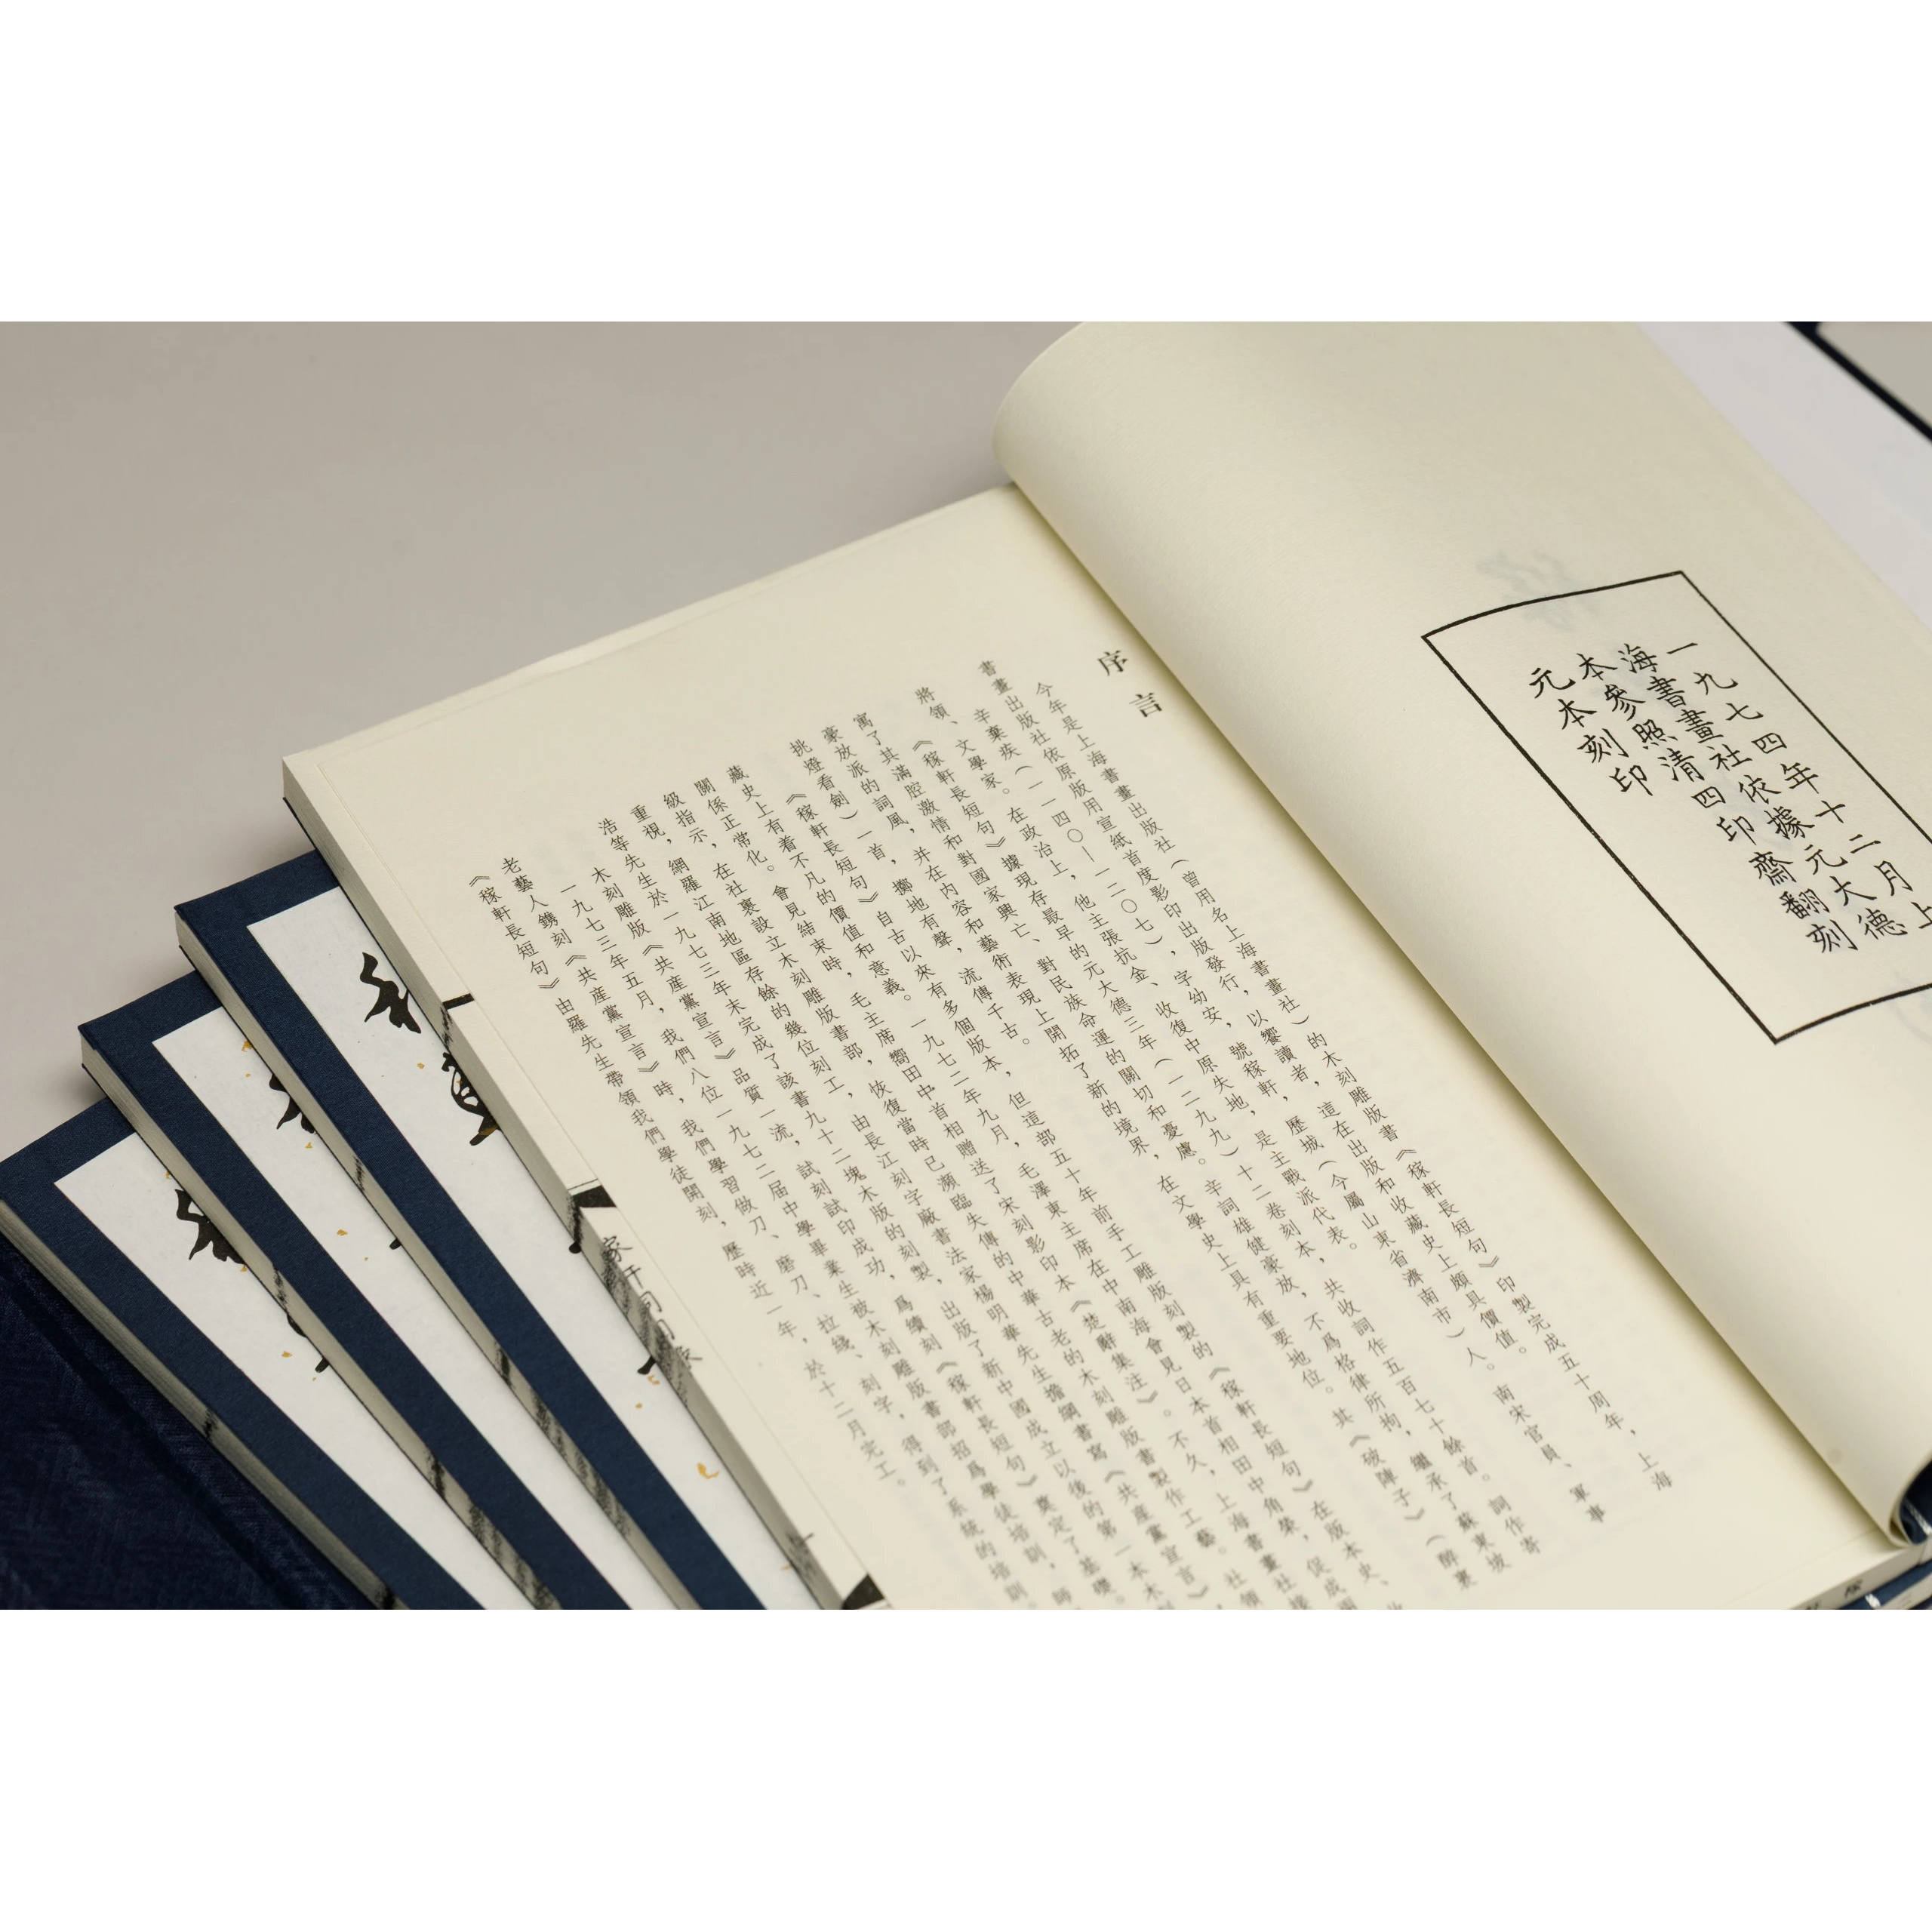 一九七四年十二月上
海書畫社依據元大德
本參照清四印齋翻刻
元本刻印
序言
今年是上海書畫出版社（曾用名上海書畫社）的木刻雕版書《稼軒長短句》印製完成五十周年，上海
書畫出版社依原版用宣紙首度影印出版發行，以饗讀者，這在出版和收藏史上頗具價值。
辛棄疾（一一四〇—一二〇七），字幼安，號稼軒，歷城（今屬山東省濟南市）人。南宋官員、軍事
將領、文學家。在政治上，他主張抗金、收復中原失地，是主戰派代表。
《稼軒長短句》據現存最早的元大德三年（一二九九）十二卷刻本，共收詞作五百七十餘首。詞作寄
寓了其滿腔激情和對國家興亡、對民族命運的關切和憂慮。辛詞雄健豪放，不爲格律所拘，繼承了蘇東坡
豪放派的詞風，并在内容和藝術表現上開拓了新的境界，在文學史上具有重要地位。其《破陣子》（醉裏
挑燈看劍）一首，擲地有聲，流傳千古。
《稼軒長短句》自古以來有多個版本，但這部五十年前手工雕版刻製的《稼軒長短句》在版本史、
藏史上有着不凡的價值和意義。一九七二年九月，毛澤東主席在中南海會見日本首相田中角榮，促成兩
關係正常化。會見結束時，毛主席嚮田中首相贈送了宋刻影印本《楚辭集注》。不久，上海書畫社接
級指示，在社裏設立木刻雕版書部，恢復當時已瀕臨失傳的中華古老的木刻雕版書製作工藝。社領
重視，網羅江南地區存餘的幾位刻工，由長江刻字廠書法家楊明華先生擔綱書寫《共産黨宣言》
浩等先生於一九七三年末完成了該書九十二塊木版的刻製，出版了新中國成立以後的第一本木
木刻雕版《共産黨宣言》品質一流，試刻試印成功，爲續刻《稼軒長短句》奠定了基礎。
一九七三年五月，我們八位一九七二届中學畢業生被木刻雕版書部招爲學徒培訓，師
老藝人鎸刻《共産黨宣言》時，我們學習做刀、磨刀、拉綫、刻字，得到了系統的培訓。
《稼軒長短句》由羅先生帶領我們學徒開刻，歷時近一年，於十二月完工。